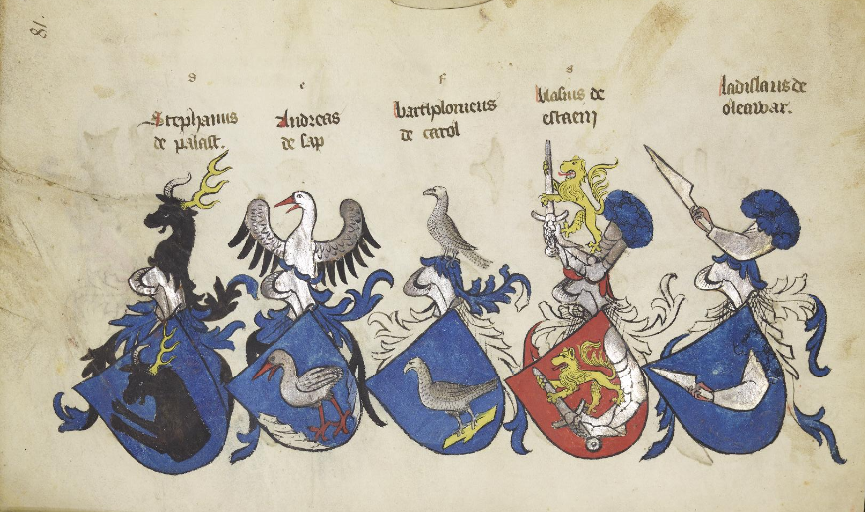 81
s
Stephanus
de palast.
e
Andreas
de sap
f
bartholomeus
de carol
s
blasius de
ladislaus de